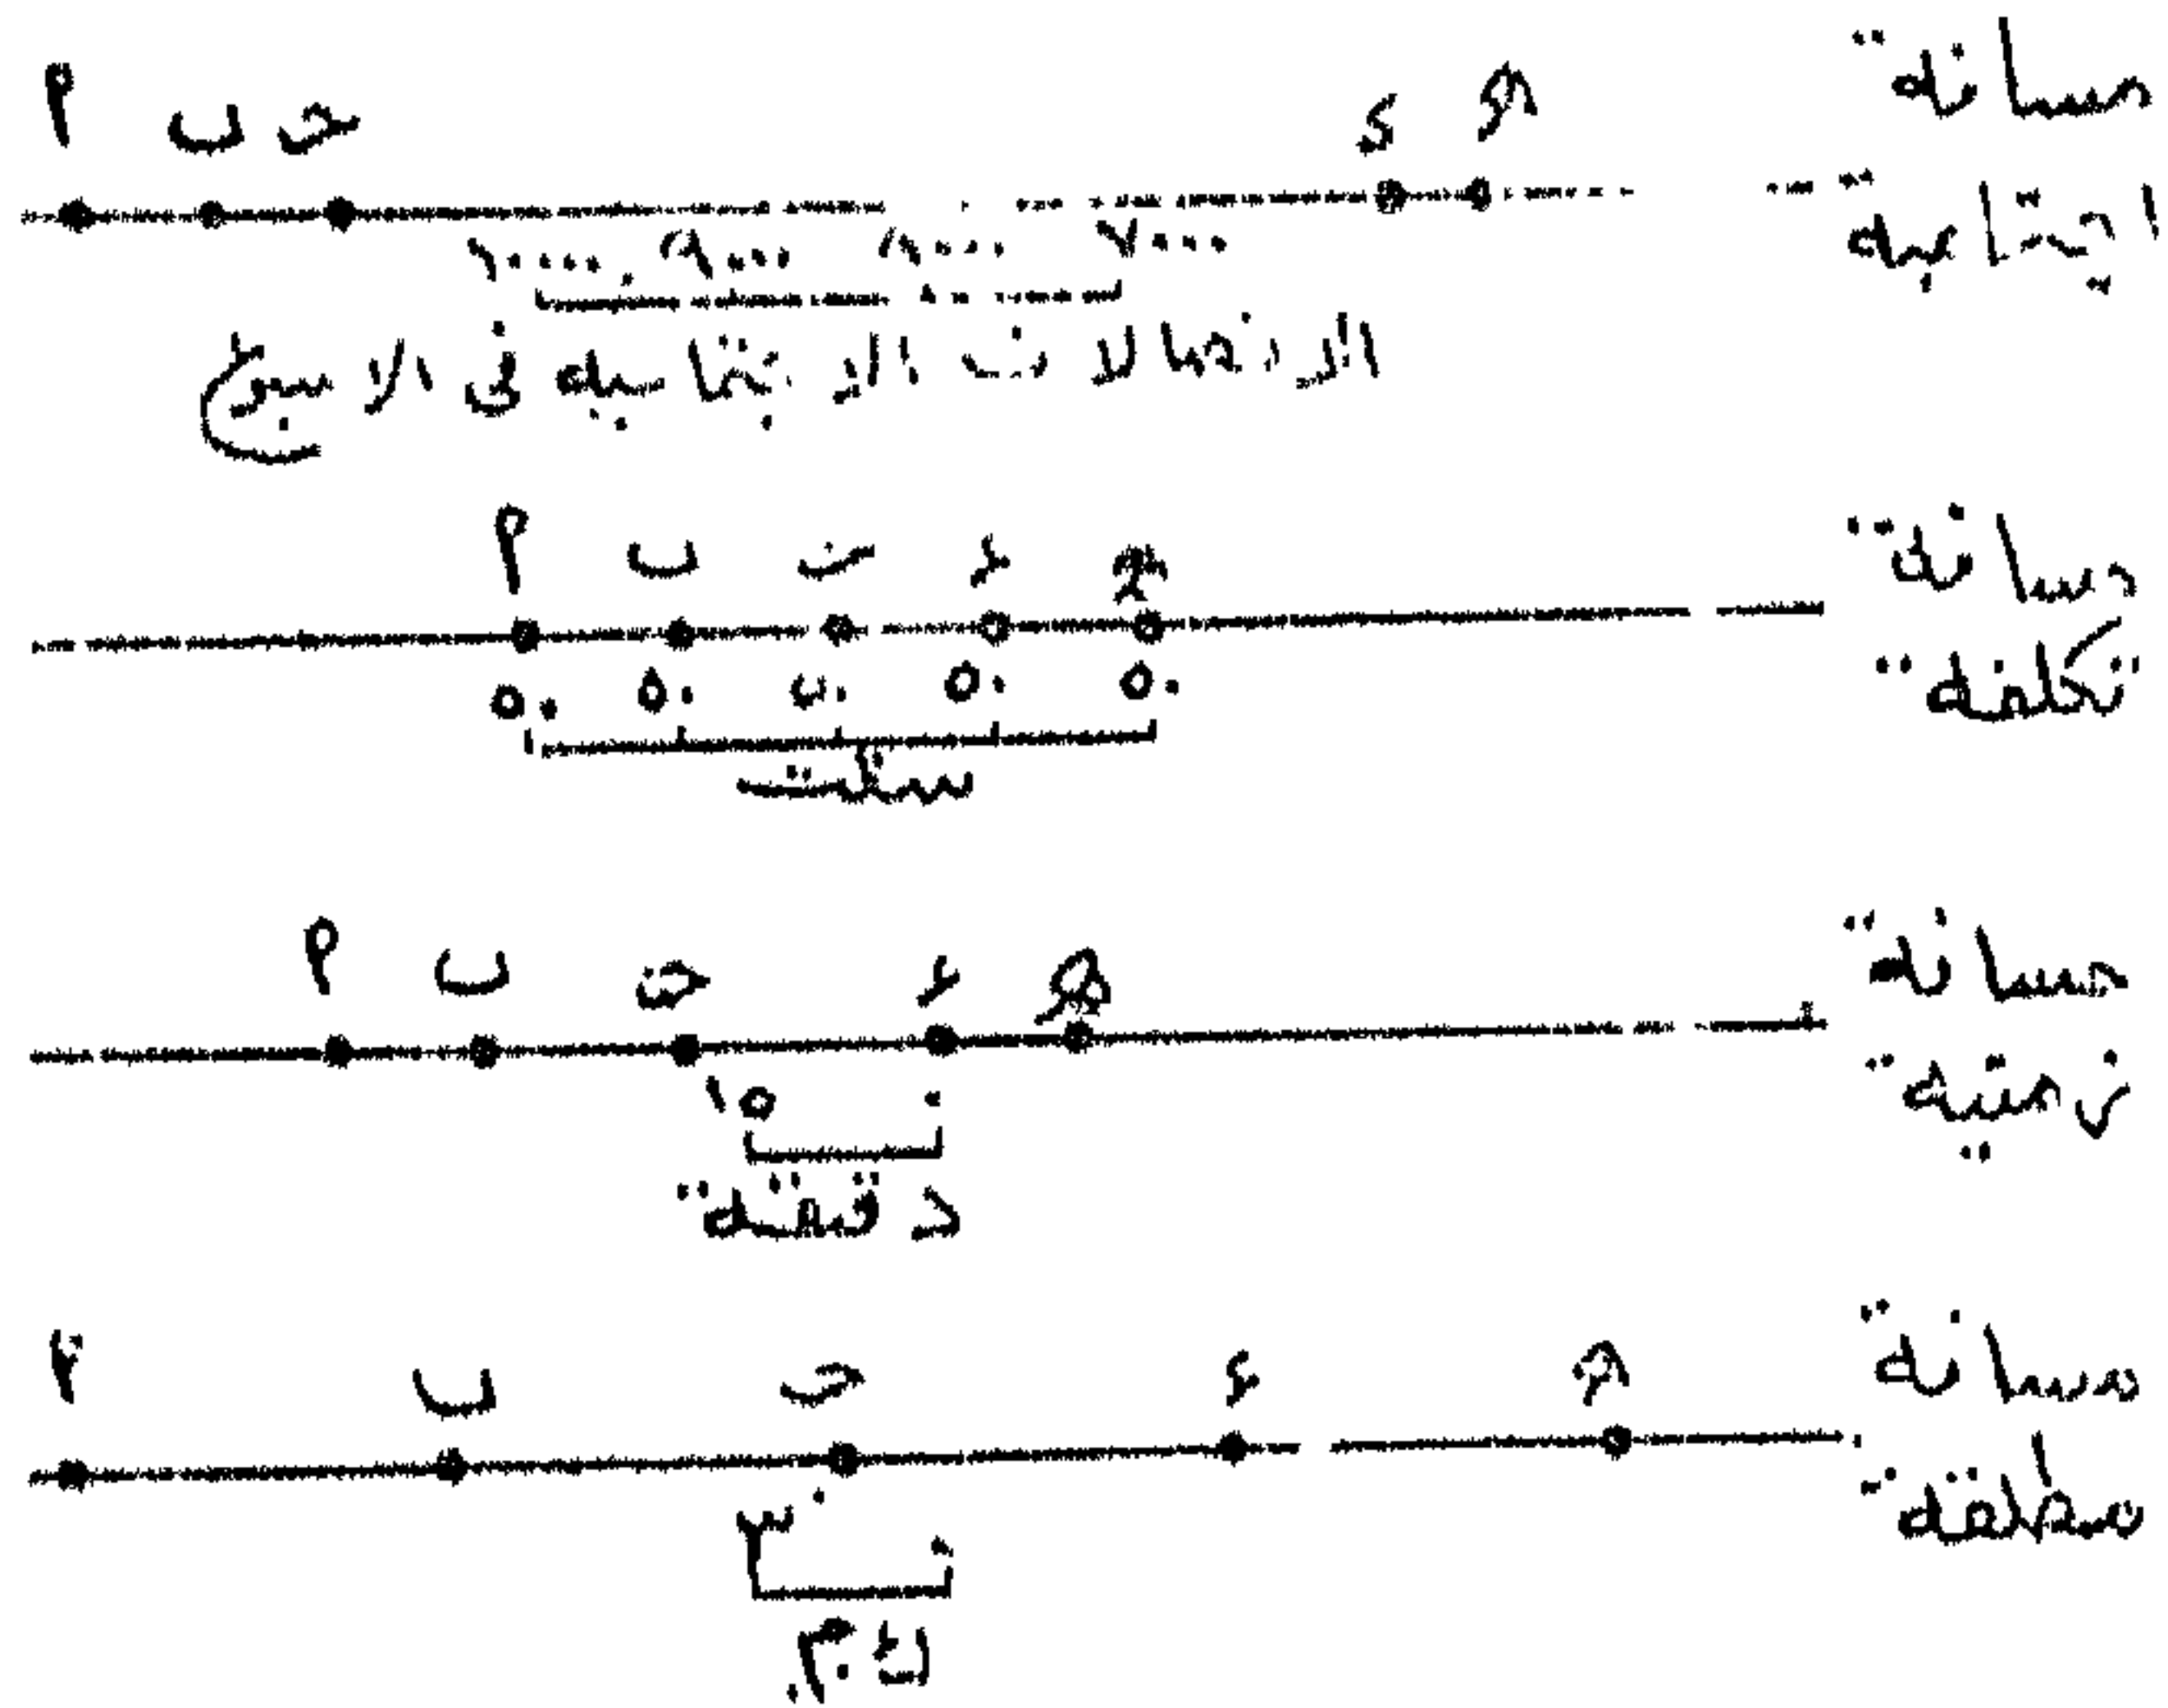 مسافة
اجتماعية
أ ب ج د هـ
١٠٠٠٠ ٩٠٠٠ ٨٠٠٠ ٧٠٠٠
الاتصالات الاجتماعية في الاسبوع
مسافة
تكلفة
أ ب ج د هـ
٥٠ ٥٠ ٥٠ ٥٠ ٥٠
سنت
مسافة
زمنية
أ ب ج د هـ
١٥ ٠
دقيقة
مسافة
مطلقة
أ ب ج د هـ
٣٠ ٠